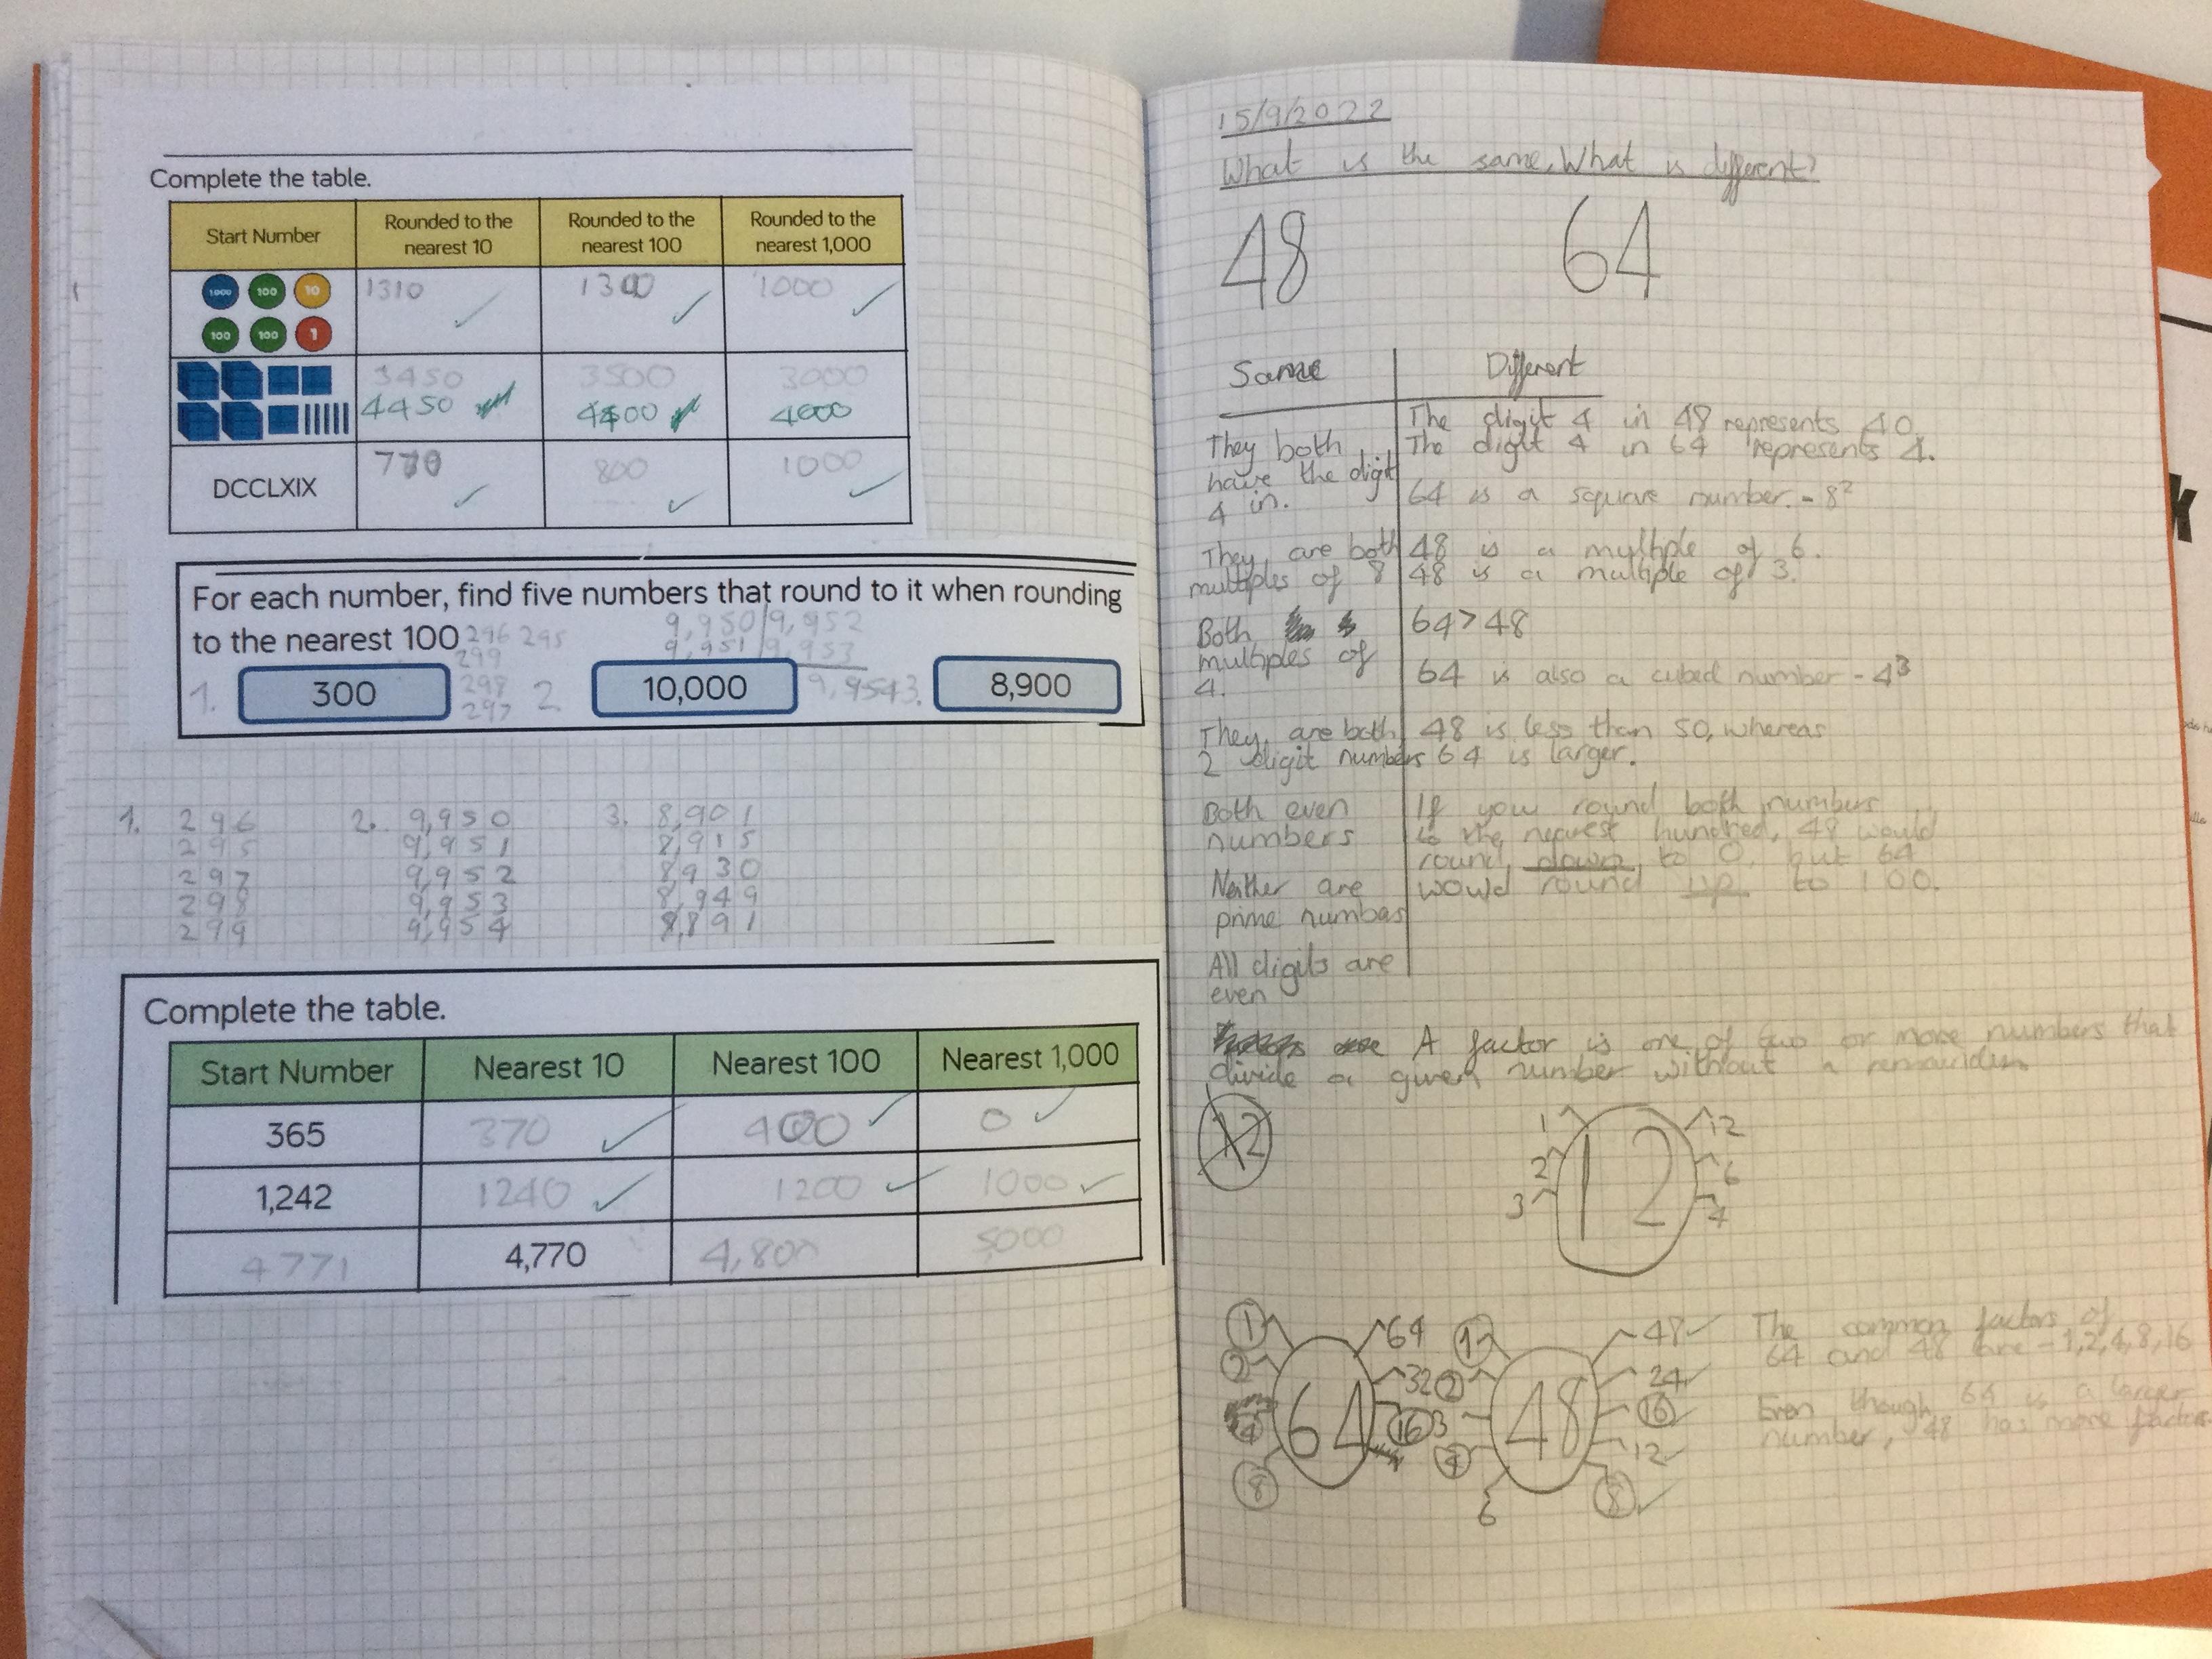 Complete the table.
Start Number Rounded to the nearest 10 Rounded to the nearest 100 Rounded to the nearest 1,000
1000 100 10
100 100 1
1310 1300 1000
3450 3500 3000
4450 4400 4000
DCCLXIX 770 800 1000
For each number, find five numbers that round to it when rounding
to the nearest 100
296 295
299
298
297
9,950 9,952
9,951 9,953
9,954
1. 300 2. 10,000 3. 8,900
1. 296 2. 9,950 3. 8,901
295 9,951 8,915
297 9,952 8930
298 9,953 8,949
299 9,954 8,891
Complete the table.
Start Number Nearest 10 Nearest 100 Nearest 1,000
365 370 400 0
1,242 1240 1200 1000
4771 4,770 4,800 5000
15/9/2022
What is the same, What is different?
48 64
Same Different
They both
have the digit
4 in.
They are both
multiples of 8
Both
multiples of
4.
They are both
2 digit numbers
Both even
numbers
Neither are
prime numbers
All digits are
even
The digit 4 in 48 represents 40.
The digit 4 in 64 represents 4.
64 is a square number. - 8²
48 is a multiple of 6.
48 is a multiple of 3.
64 > 48
64 is also a cubed number - 4³
48 is less than 50, whereas
64 is larger.
If you round both numbers
to the nearest hundred, 48 would
round down to 0, but 64
would round up to 100.
A factor is one of two or more numbers that
divide a given number without a remainder
12
12
1 12
2 6
3 4
64
1 64
2 32
4 16
8
48
1 48
2 24
3 16
4 12
6 8
The common factors of
64 and 48 are - 1,2,4,8,16
Even though 64 is a larger
number, 48 has more factors